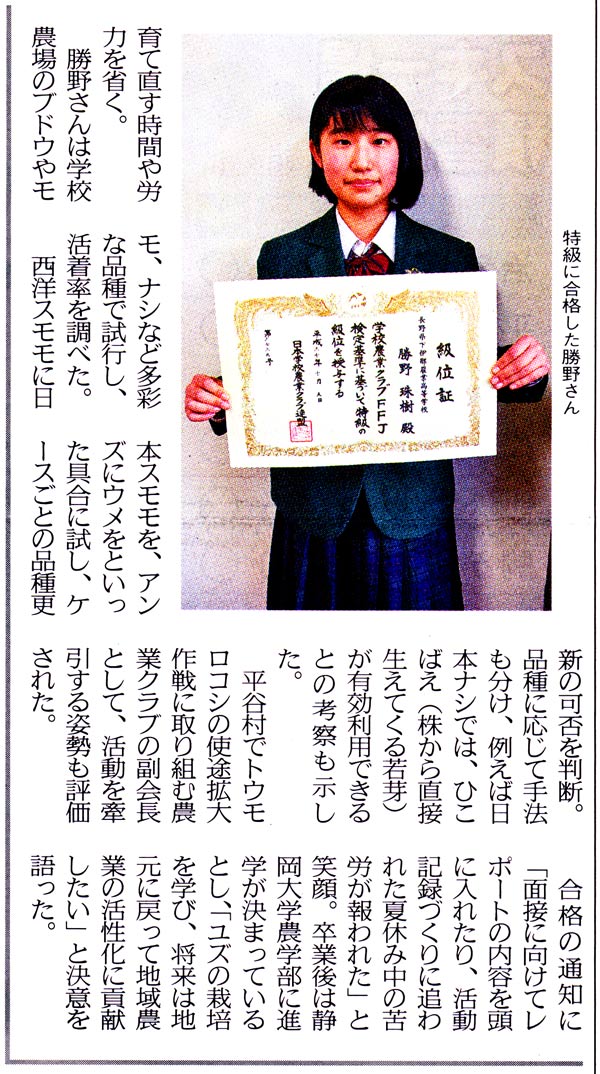 育て直す時間や労
力を省く。
勝野さんは学校
農場のブドウやモ
モ、ナシなど多彩
な品種で試行し、
活着率を調べた。
西洋スモモに日
本スモモを、アン
ズにウメをといっ
た具合に試し、ケ
ースごとの品種更
新の可否を判断。
品種に応じて手法
も分け、例えば日
本ナシでは、ひこ
ばえ（株から直接
生えてくる若芽）
が有効利用できる
との考察も示し
た。
平谷村でトウモ
ロコシの使途拡大
作戦に取り組む農
業クラブの副会長
として、活動を牽
引する姿勢も評価
された。
合格の通知に
「面接に向けてレ
ポートの内容を頭
に入れたり、活動
記録づくりに追わ
れた夏休み中の苦
労が報われた」と
笑顔。卒業後は静
岡大学農学部に進
学が決まっている
とし、「ユズの栽培
を学び、将来は地
元に戻って地域農
業の活性化に貢献
したい」と決意を
語った。
特級に合格した勝野さん
級位証
長野県下伊那農業高等学校
勝野 珠樹 殿
学校農業クラブFFJ
検定基準に基づいて特級の
級位を授与する
日本学校農業クラブ連盟